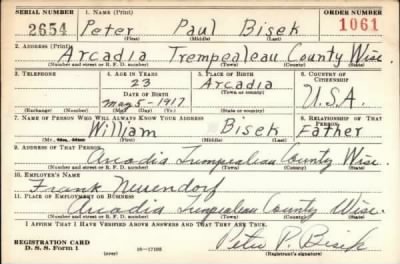 SERIAL NUMBER 1. NAME (Print) ORDER NUMBER
2654 Peter Paul Bisek 1061
(First) (Middle) (Last)
2. ADDRESS (Print)
Arcadia Trempealeau County Wisc.
(Number and street or R. F. D. number) (Town) (County) (State)
3. TELEPHONE 4. AGE IN YEARS 5. PLACE OF BIRTH 6. COUNTRY OF CITIZENSHIP
23 Arcadia
DATE OF BIRTH (Town or county) U.S.A.
May 5-1917
(Exchange) (Number) (Mo.) (Day) (Yr.) (State or country)
7. NAME OF PERSON WHO WILL ALWAYS KNOW YOUR ADDRESS 8. RELATIONSHIP OF THAT PERSON
William Bisek Father
(Mr., Mrs., Miss) (First) (Middle) (Last)
9. ADDRESS OF THAT PERSON
Arcadia Trempealeau County Wisc.
(Number and street or R. F. D. number) (Town) (County) (State)
10. EMPLOYER'S NAME
Frank
11. PLACE OF EMPLOYMENT OR BUSINESS
Arcadia Trempealeau County Wisc.
(Number and street or R. F. D. number) (Town) (County) (State)
I AFFIRM THAT I HAVE VERIFIED ABOVE ANSWERS AND THAT THEY ARE TRUE.
REGISTRATION CARD
D. S. S. Form 1 16-17105 Peter P. Bisek
(over) (Registrant's signature)